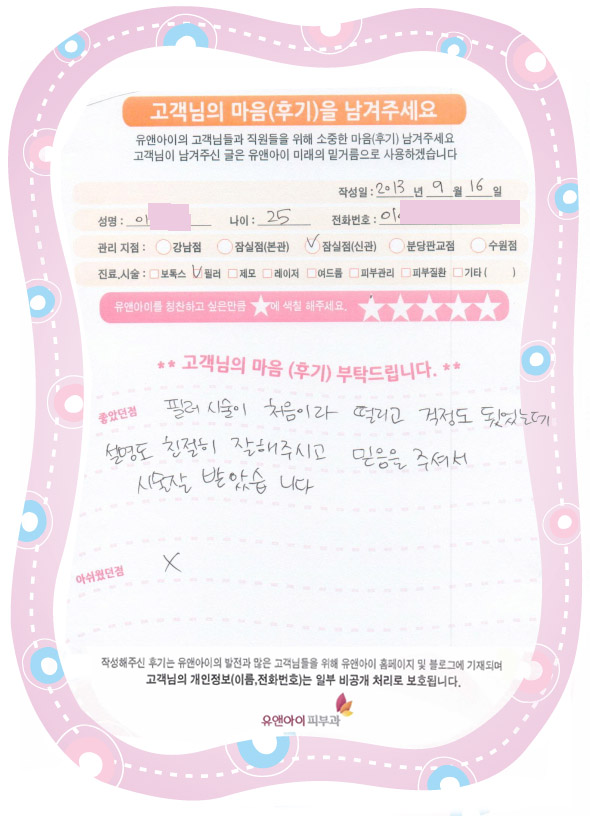 고객님의 마음(후기)을 남겨주세요
유앤아이의 고객님들과 직원들을 위해 소중한 마음(후기) 남겨주세요
고객님이 남겨주신 글은 유앤아이 미래의 밑거름으로 사용하겠습니다
작성일 : 2013 년 9 월 16 일
성명 : 이 나이 : 25 전화번호 : 01
관리 지점 : 강남점 잠실점(본관) 잠실점(신관) 분당판교점 수원점
진료,시술 : 보톡스 필러 제모 레이저 여드름 피부관리 피부질환 기타 ( )
유앤아이를 칭찬하고 싶은만큼 ★에 색칠 해주세요. ★★★★★
** 고객님의 마음 (후기) 부탁드립니다. **
좋았던점 필러 시술이 처음이라 떨리고 걱정도 됬었는데
설명도 친절히 잘해주시고 믿음을 주셔서
시술잘 받았습니다
아쉬웠던점 X
작성해주신 후기는 유앤아이의 발전과 많은 고객님들을 위해 유앤아이 홈페이지 및 블로그에 기재되며
고객님의 개인정보(이름,전화번호)는 일부 비공개 처리로 보호됩니다.
유앤아이 피부과